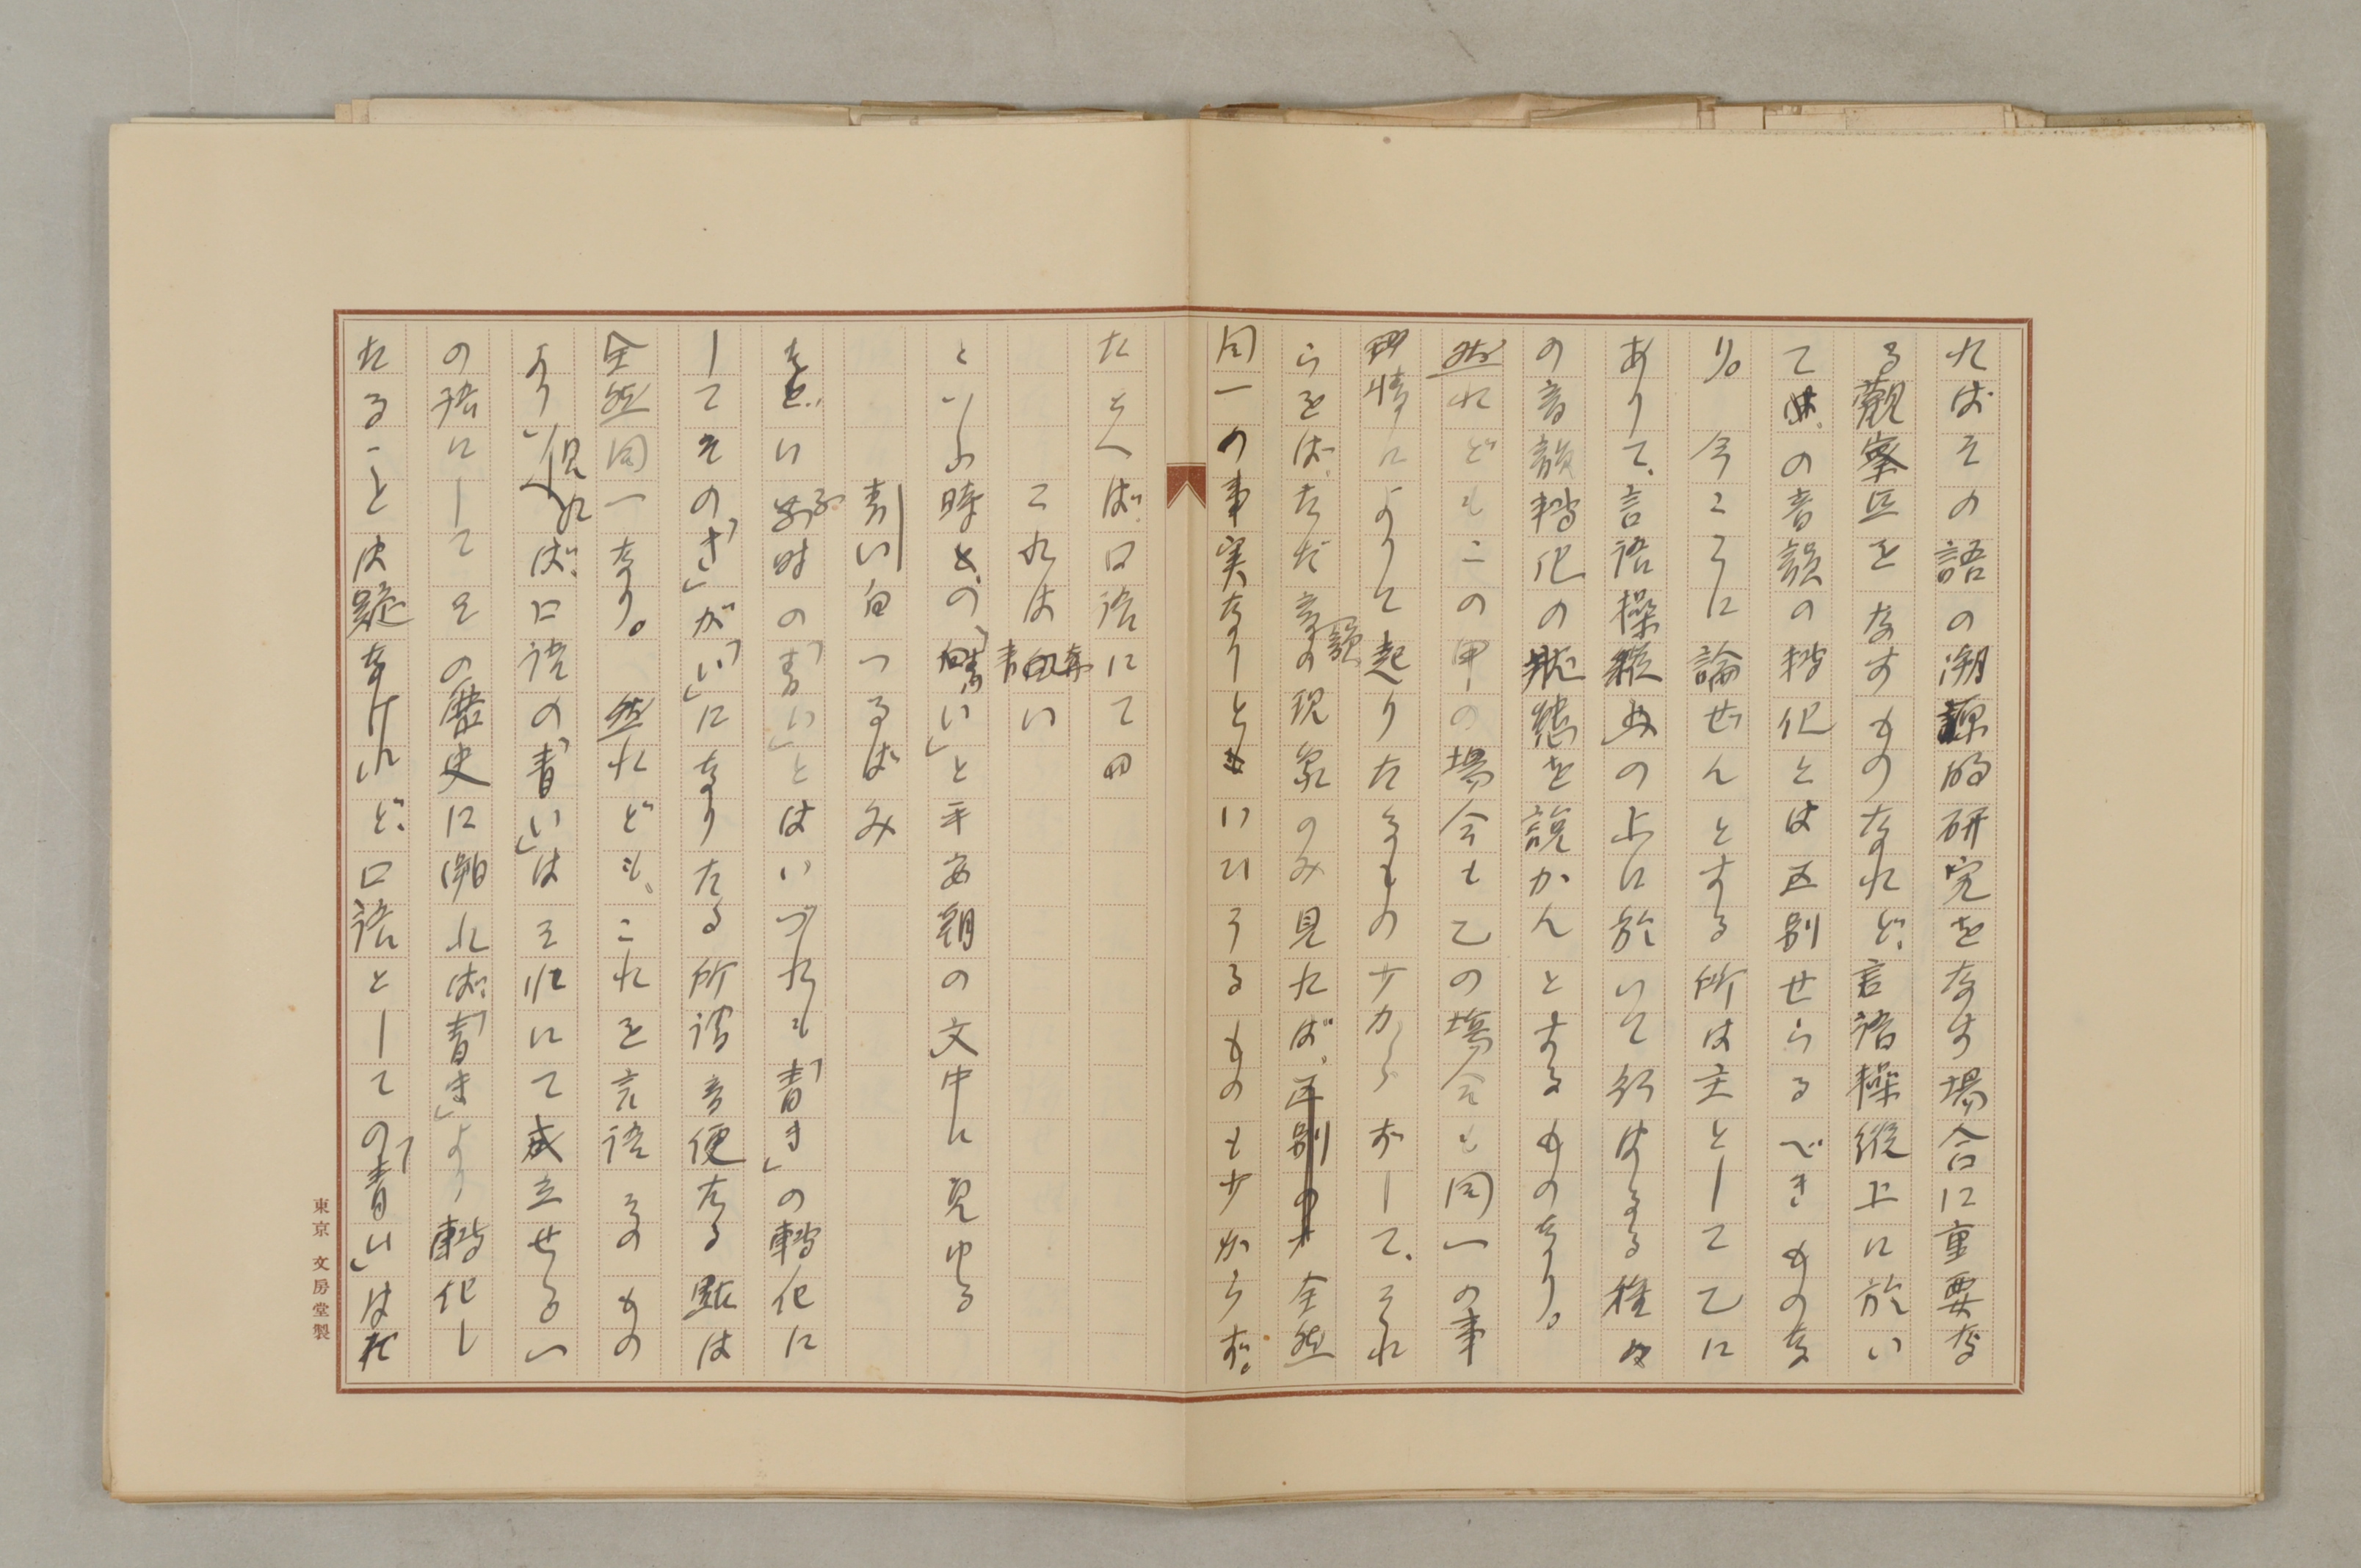 ればその語の溯源的研究をなす場合に重要な
る観察点をなすものなれど、言語操縦上に於い
ては、の音韻の轉化とは区別せらるべきものな
り。今こゝに論ぜんとする所は主として乙に
ありて、言語操縦の上に於いて行はるる種々
の音韻轉化の状態を説かんとするものなり。
然れどもこの甲の場合も乙の場合も同一の事
情によりて起りたるもの少からずして、それ
らをば、たゞ音韻の現象のみ見れば、区別の 全然
同一の事実なりともいひうるものも少からず。
たとへば、口語にて
これは青い
といふ時との、「青い」と平安朝の文中に見ゆる
青い白つるばみ
などいふ時の「青い」とはいづれも「青き」の轉化に
してその「き」が「い」になりたる所謂音便なる點は
全然同一なり。然れども、これを言語そのもの
より見れば、口語の「青い」はそれにて成立せるい
の語にしてその歴史に溯れば、「青き」より轉化し
たることは疑なけれど、口語としての「青い」はた
東京 文房堂製